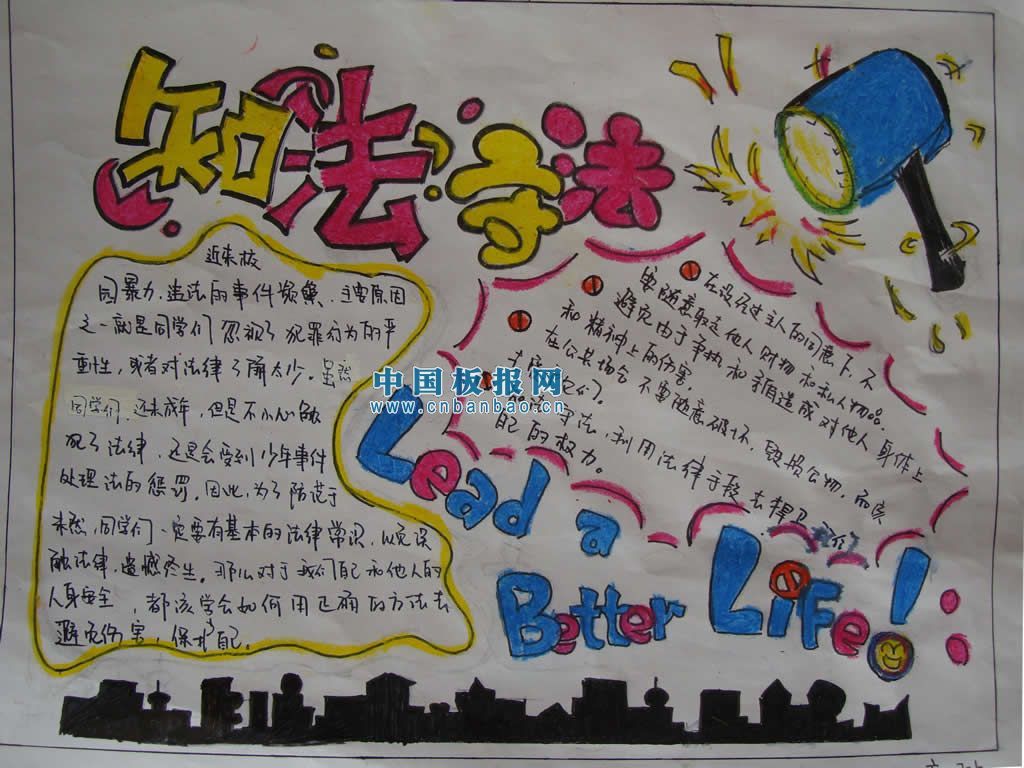 知法守法
近来校
园暴力、违法的事件频繁、主要原因
之一就是同学们忽视了犯罪行为的严
重性，或者对法律了解太少。虽然
同学们还未成年，但是不小心触
犯了法律，还是会受到少年事件
处理法的惩罚，因此，为了防范于
未然，同学们一定要有基本的法律常识，以免误
触法律，遗憾终生。那么对于我们自己和他人的
人身安全，都该学会如何用正确的方法去
避免伤害，保护自己。
在没经过主人的同意下，不
要随意取走他人财物和私人物品。
避免由于争执和
造成对他人身体上
和精神上的伤害。
在公共场合不要随意破坏、毁损公物，而要
守法，利用法律手段去捍卫
自己的权力。
中国板报网
www.cnbanbao.cn
Lead a
Better Life!